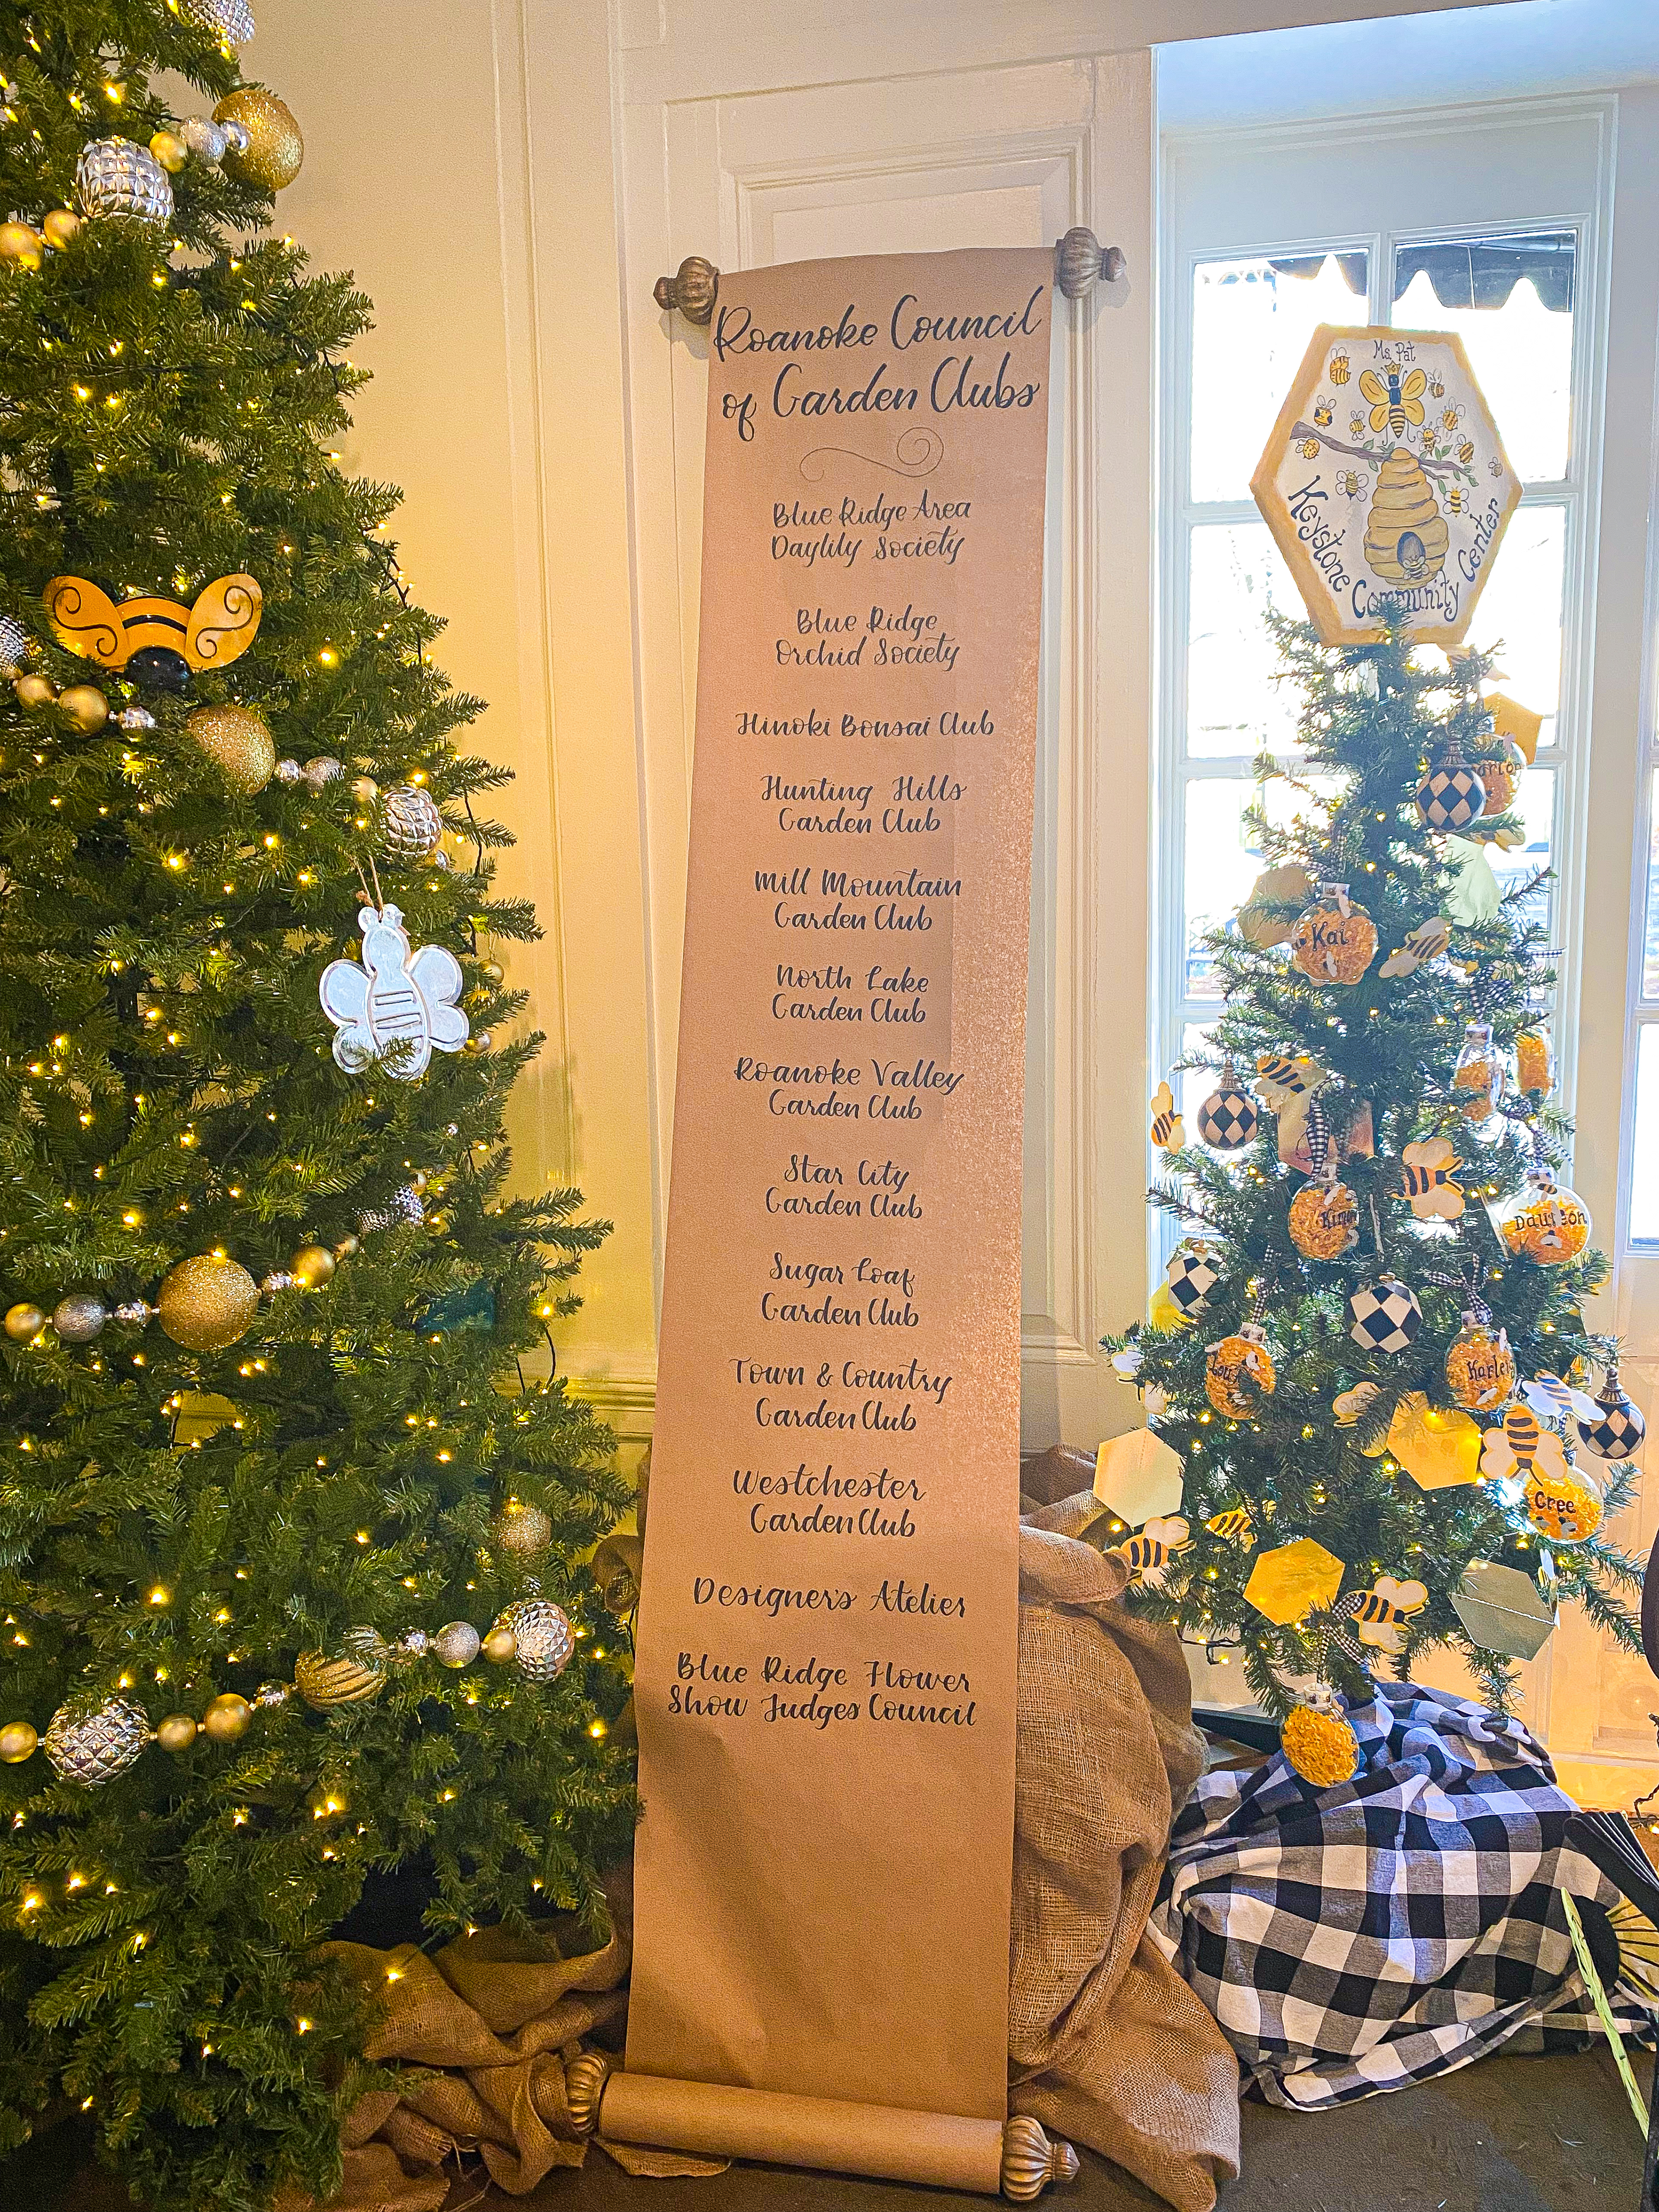 Roanoke Council
of Garden Clubs
Blue Ridge Area
Daylily Society
Blue Ridge
Orchid Society
Hinoki Bonsai Club
Hunting Hills
Garden Club
Mill Mountain
Garden Club
North Lake
Garden Club
Roanoke Valley
Garden Club
Star City
Garden Club
Sugar Loaf
Garden Club
Town & Country
Garden Club
Westchester
Garden Club
Designer's Atelier
Blue Ridge Flower
Show Judges Council
Ms. Pat
Keystone Community Center
Kai
Dawson
Cree